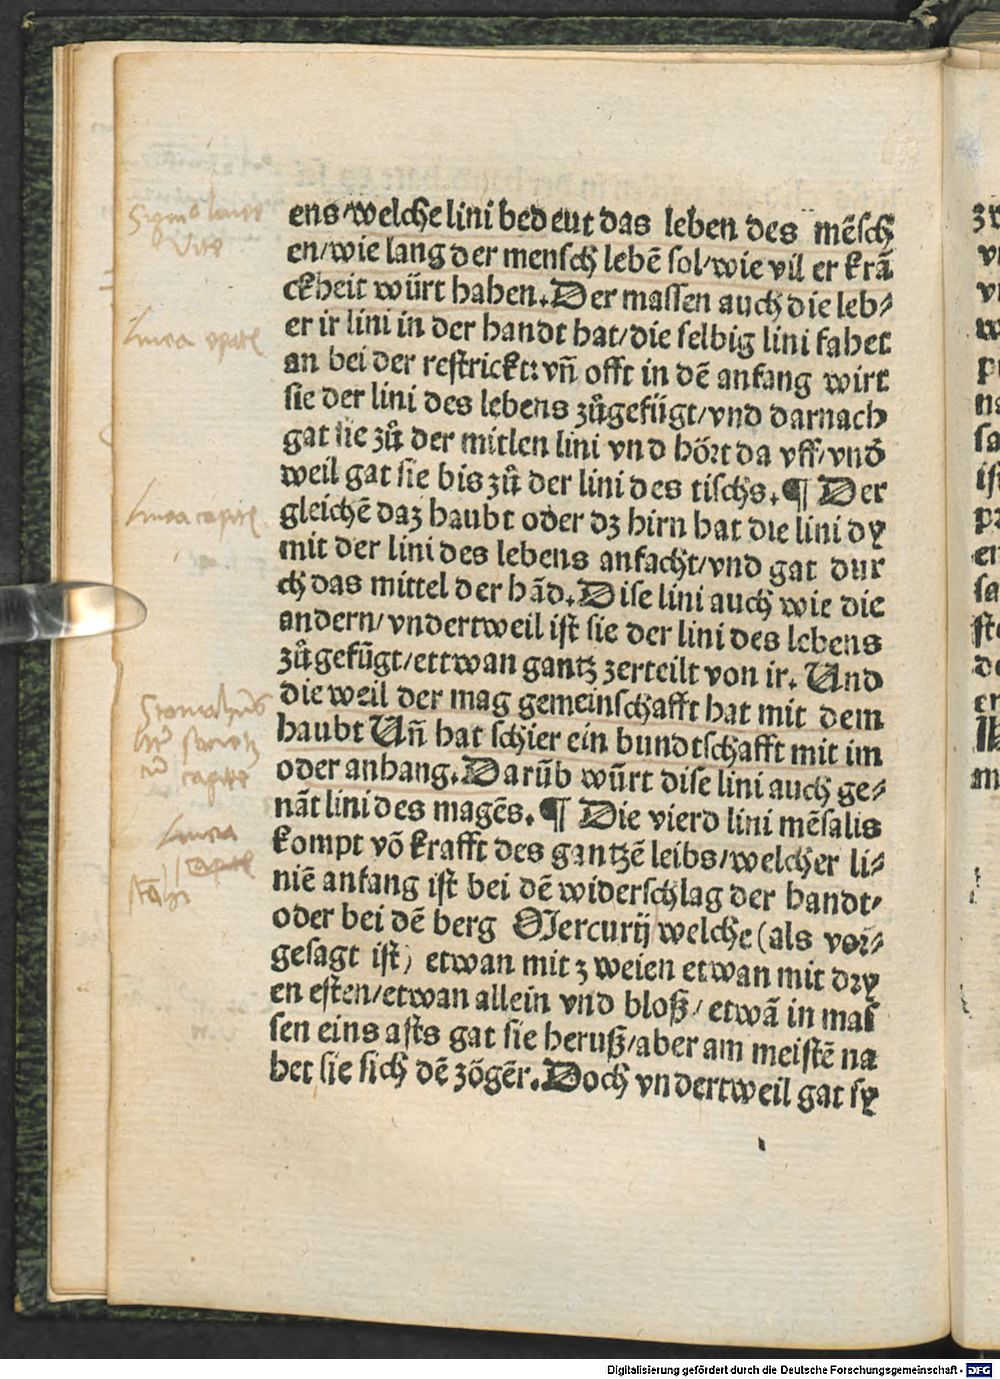 ens/welche lini bedeut das leben des mēsch
en/wie lang der mensch lebē sol/wie vil er krā
ckheit würt haben. Der massen auch die leb⸗
er ir lini in der handt hat/die selbig lini fahet
an bei der restrickt: vñ offt in dē anfang wirt
sie der lini des lebens zůgefügt/vnd darnach
gat sie zů der mitlen lini vnd hört da vff/vnd
weil gat sie bis zů der lini des tischs. ¶ Der
gleichē daz haubt oder dz hirn hat die lini dy
mit der lini des lebens anfacht/vnd gat dur
ch das mittel der hād. Dise lini auch wie die
andern/vndertweil ist sie der lini des lebens
zůgefügt/ettwan gantz zerteilt von ir. Und
die weil der mag gemeinschafft hat mit dem
haubt Uñ hat schier ein bundtschafft mit im
oder anhang. Darūb würt dise lini auch ge⸗
nāt lini des magēs. ¶ Die vierd lini mēsalis
kompt vō krafft des gantzē leibs/welcher li⸗
niē anfang ist bei dē widerschlag der handt/
oder bei dē berg Mercurij welche (als vor⸗
gesagt ist) etwan mit zweien etwan mit dry
en esten/etwan allein vnd bloß/etwā in mas
sen eins asts gat sie heruß/aber am meistē na
het sie sich dē zögēr. Doch vndertweil gat sy
Linea
Vite
Linea
Linea capitis
Linea
capitis
Digitalisierung gefördert durch die Deutsche Forschungsgemeinschaft - DFG